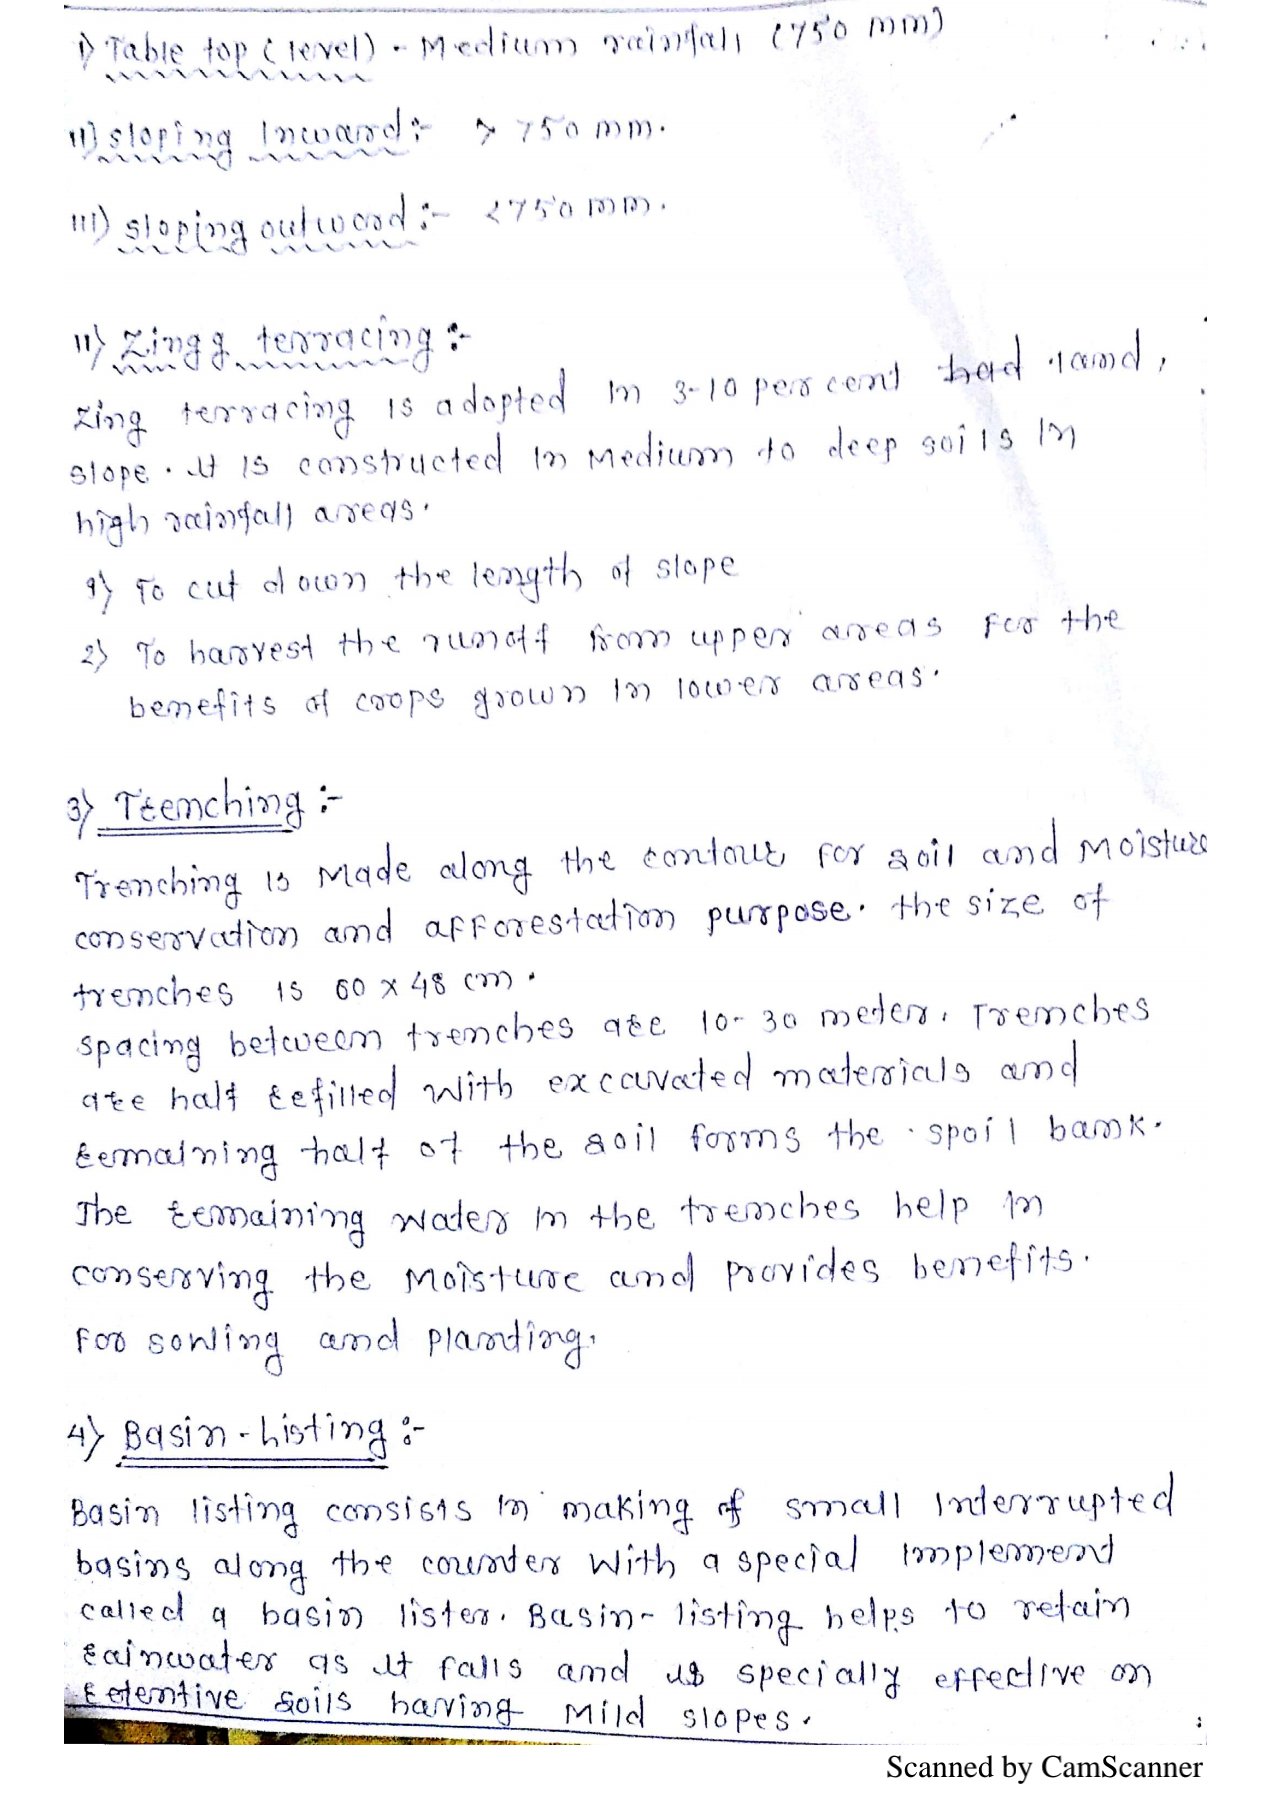 i) Table top (level) - Medium rainfall (750 mm)
ii) sloping Inward :- > 750 mm.
iii) sloping outward :- < 750 mm.
ii) Zingg terracing :-
Zing terracing is adopted in 3-10 per cent land,
slope. It is constructed in Medium to deep soils in
high rainfall areas.
1) To cut down the length of slope
2) To harvest the runoff from upper areas For the
benefits of crops grown in lower areas.
3) Trenching :-
Trenching is Made along the contour for soil and Moisture
conservation and afforestation purpose. the size of
trenches is 60 x 48 cm.
spacing between trenches are 10-30 meter. Trenches
are half refilled with excavated materials and
remaining half of the soil forms the spoil bank.
The remaining water in the trenches help in
conserving the Moisture and provides benefits.
For sowing and planting.
4) Basin-Listing :-
Basin listing consists in making of small Interrupted
basins along the counter with a special Implement
called a basin lister. Basin-listing helps to retain
rainwater as it falls and is specially effective on
retentive soils having Mild slopes.
Scanned by CamScanner